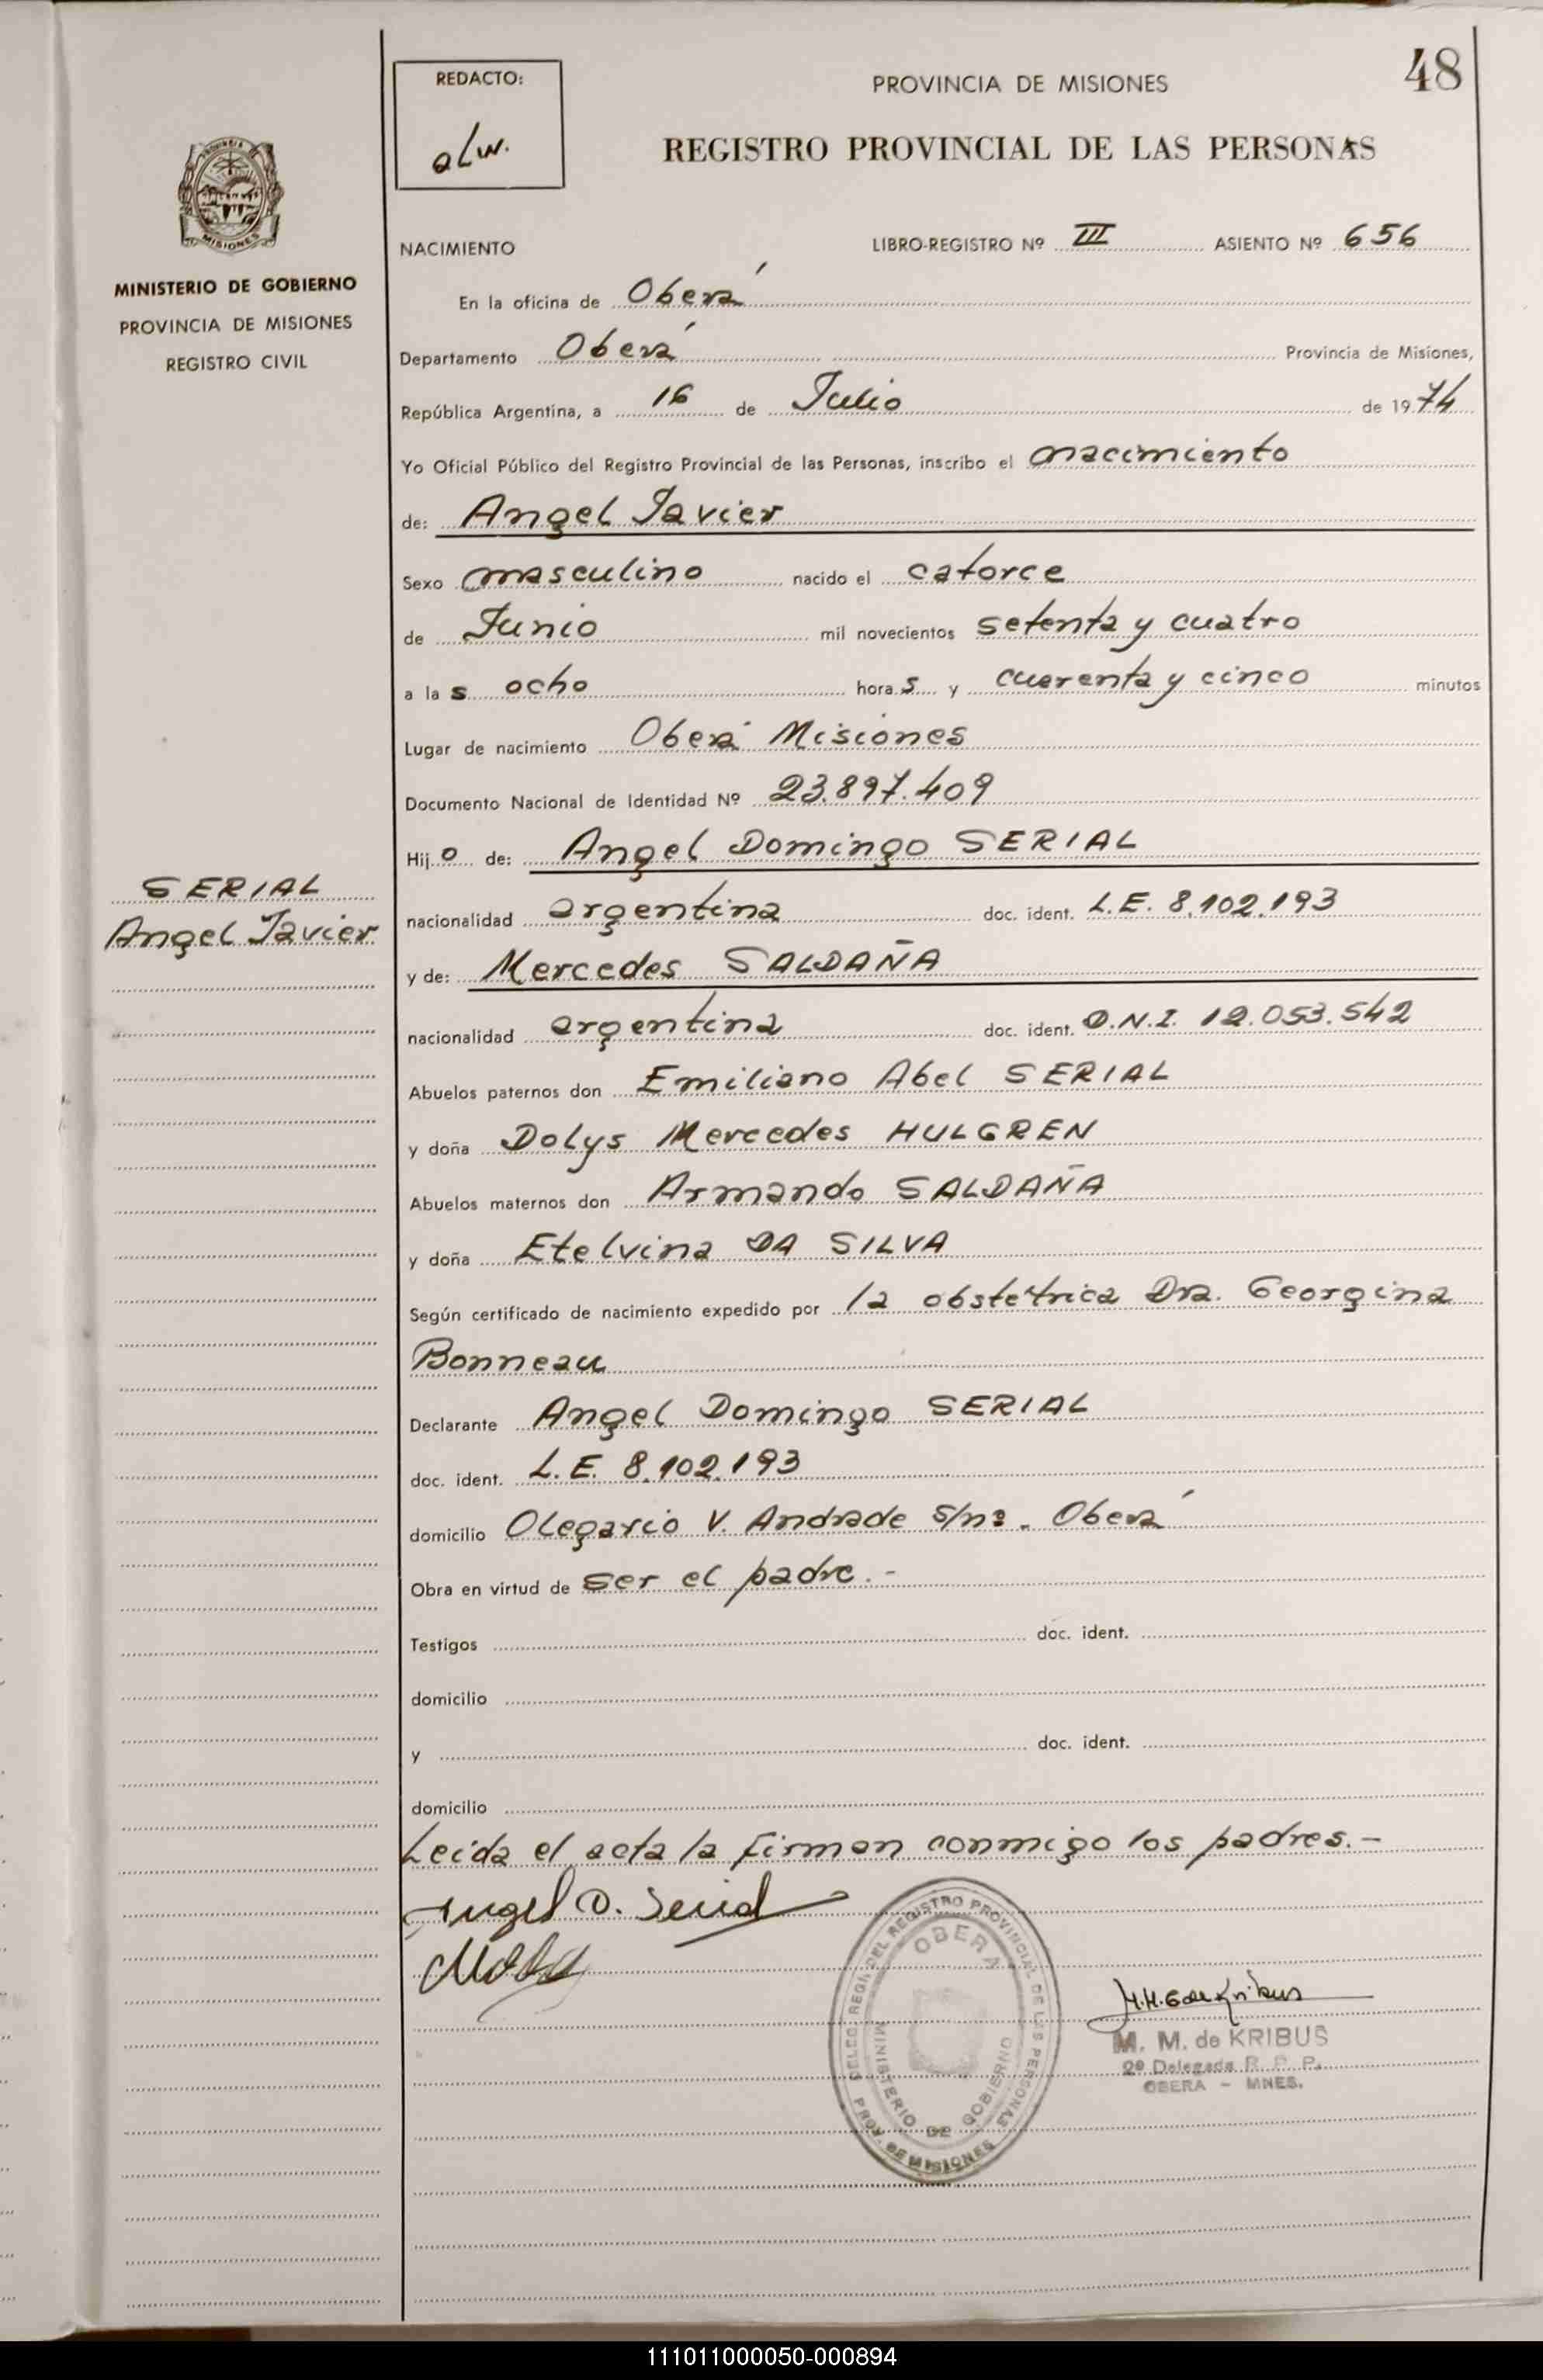 48
REDACTO:
aLw.
PROVINCIA DE MISIONES
REGISTRO PROVINCIAL DE LAS PERSONAS
PROVINCIA DE
MISIONES
MINISTERIO DE GOBIERNO
PROVINCIA DE MISIONES
REGISTRO CIVIL
NACIMIENTO LIBRO-REGISTRO Nº III ASIENTO Nº 656
En la oficina de Oberá
Departamento Oberá Provincia de Misiones,
República Argentina, a 16 de Julio de 1974
Yo Oficial Público del Registro Provincial de las Personas, inscribo el nacimiento
de: Angel Javier
Sexo masculino nacido el catorce
de Junio mil novecientos setenta y cuatro
a las ocho horas y cuarenta y cinco minutos
Lugar de nacimiento Oberá Misiones
Documento Nacional de Identidad Nº 23.897.409
Hijo de: Angel Domingo SERIAL
SERIAL
Angel Javier
nacionalidad argentina doc. ident. L.E. 8.102.193
y de: Mercedes SALDAÑA
nacionalidad argentina doc. ident. D.N.I. 12.053.542
Abuelos paternos don Emiliano Abel SERIAL
y doña Dolys Mercedes HULGREN
Abuelos maternos don Armando SALDAÑA
y doña Etelvina DA SILVA
Según certificado de nacimiento expedido por la obstétrica Dra. Georgina
Bonneau
Declarante Angel Domingo SERIAL
doc. ident. L.E. 8.102.193
domicilio Olegario V. Andrade s/nº. Oberá
Obra en virtud de ser el padre.-
Testigos doc. ident.
domicilio
y doc. ident.
domicilio
Leida el acta la firman conmigo los padres.-
Angel D. Serial
DEL REGISTRO PROVINCIAL DE LAS PERSONAS
PROV. DE MISIONES
OBERA
MINISTERIO DE GOBIERNO
M. M. de KRIBUS
2º Delegada R. P. P.
OBERA - MNES.
111011000050-000894